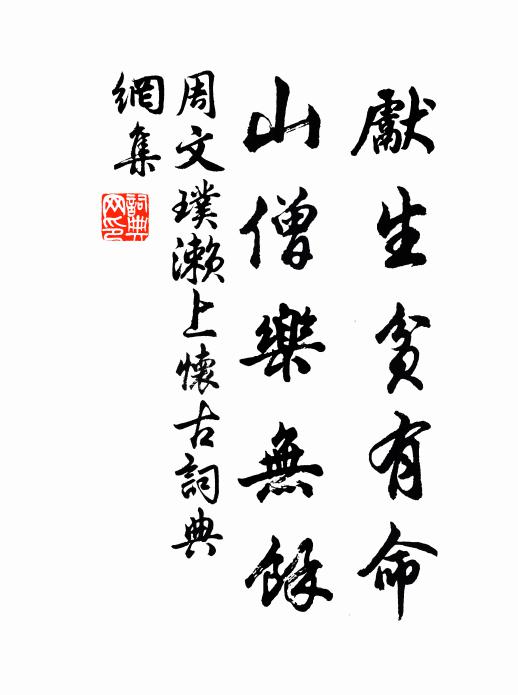 獻生貧有命
山僧樂無餘
周文璞瀨上懷古詞典
網集
詞典網印